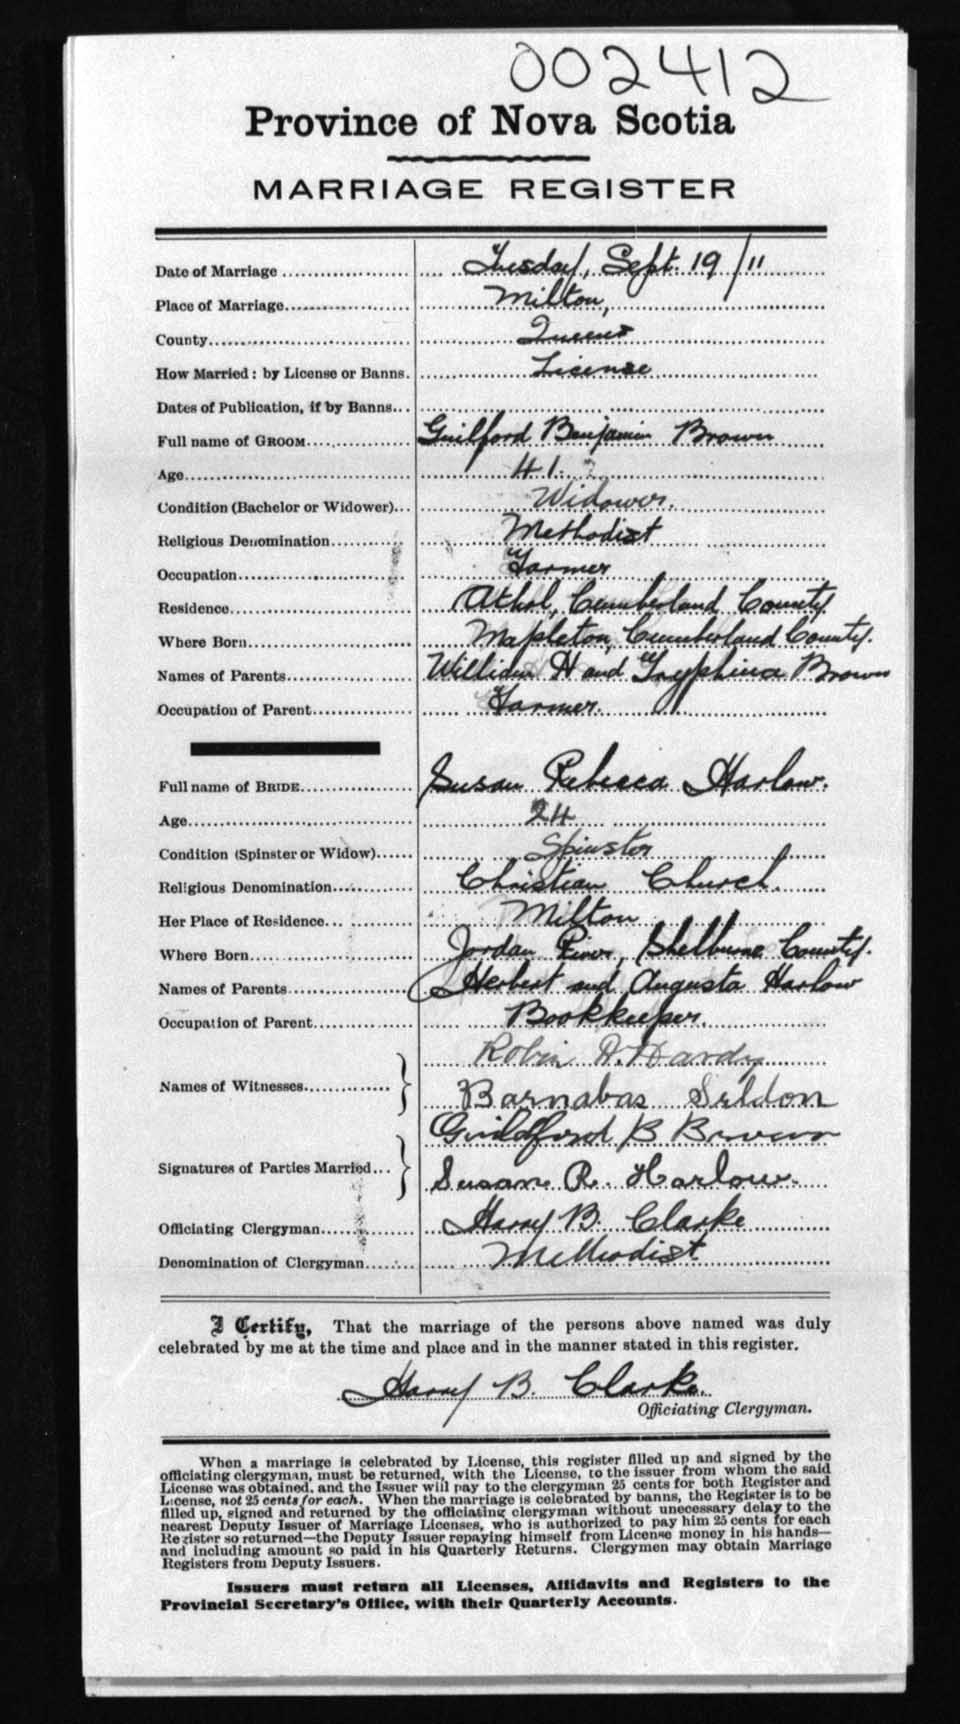 002412
Province of Nova Scotia
MARRIAGE REGISTER
Date of Marriage Tuesday, Sept. 19/11
Place of Marriage Milton,
County Queens
How Married: by License or Banns. License
Dates of Publication, if by Banns
Full name of GROOM Guilford Benjamin Brown
Age 41.
Condition (Bachelor or Widower) Widower.
Religious Denomination Methodist
Occupation Farmer
Residence Athol, Cumberland County.
Where Born Mapleton, Cumberland County.
Names of Parents William H and Tryphina Brown
Occupation of Parent Farmer.
Full name of BRIDE Susan Rebecca Harlow.
Age 24
Condition (Spinster or Widow) Spinster
Religious Denomination Christian Church.
Her Place of Residence Milton
Where Born Jordan River, Shelburne County.
Names of Parents Herbert and Augusta Harlow
Occupation of Parent Bookkeeper.
Names of Witnesses Robin A. Hardy
Barnabas Seldon
Signatures of Parties Married Guildford B Brown
Susan R. Harlow.
Officiating Clergyman Harry B. Clarke
Denomination of Clergyman Methodist
I Certify, That the marriage of the persons above named was duly
celebrated by me at the time and place and in the manner stated in this register.
Harry B. Clarke.
Officiating Clergyman.
When a marriage is celebrated by License, this register filled up and signed by the
officiating clergyman, must be returned, with the License, to the issuer from whom the said
License was obtained, and the Issuer will pay to the clergyman 25 cents for both Register and
License, not 25 cents for each. When the marriage is celebrated by banns, the Register is to be
filled up, signed and returned by the officiating clergyman without unnecessary delay to the
nearest Deputy Issuer of Marriage Licenses, who is authorized to pay him 25 cents for each
Register so returned—the Deputy Issuer repaying himself from License money in his hands—
and including amount so paid in his Quarterly Returns. Clergymen may obtain Marriage
Registers from Deputy Issuers.
Issuers must return all Licenses, Affidavits and Registers to the
Provincial Secretary's Office, with their Quarterly Accounts.